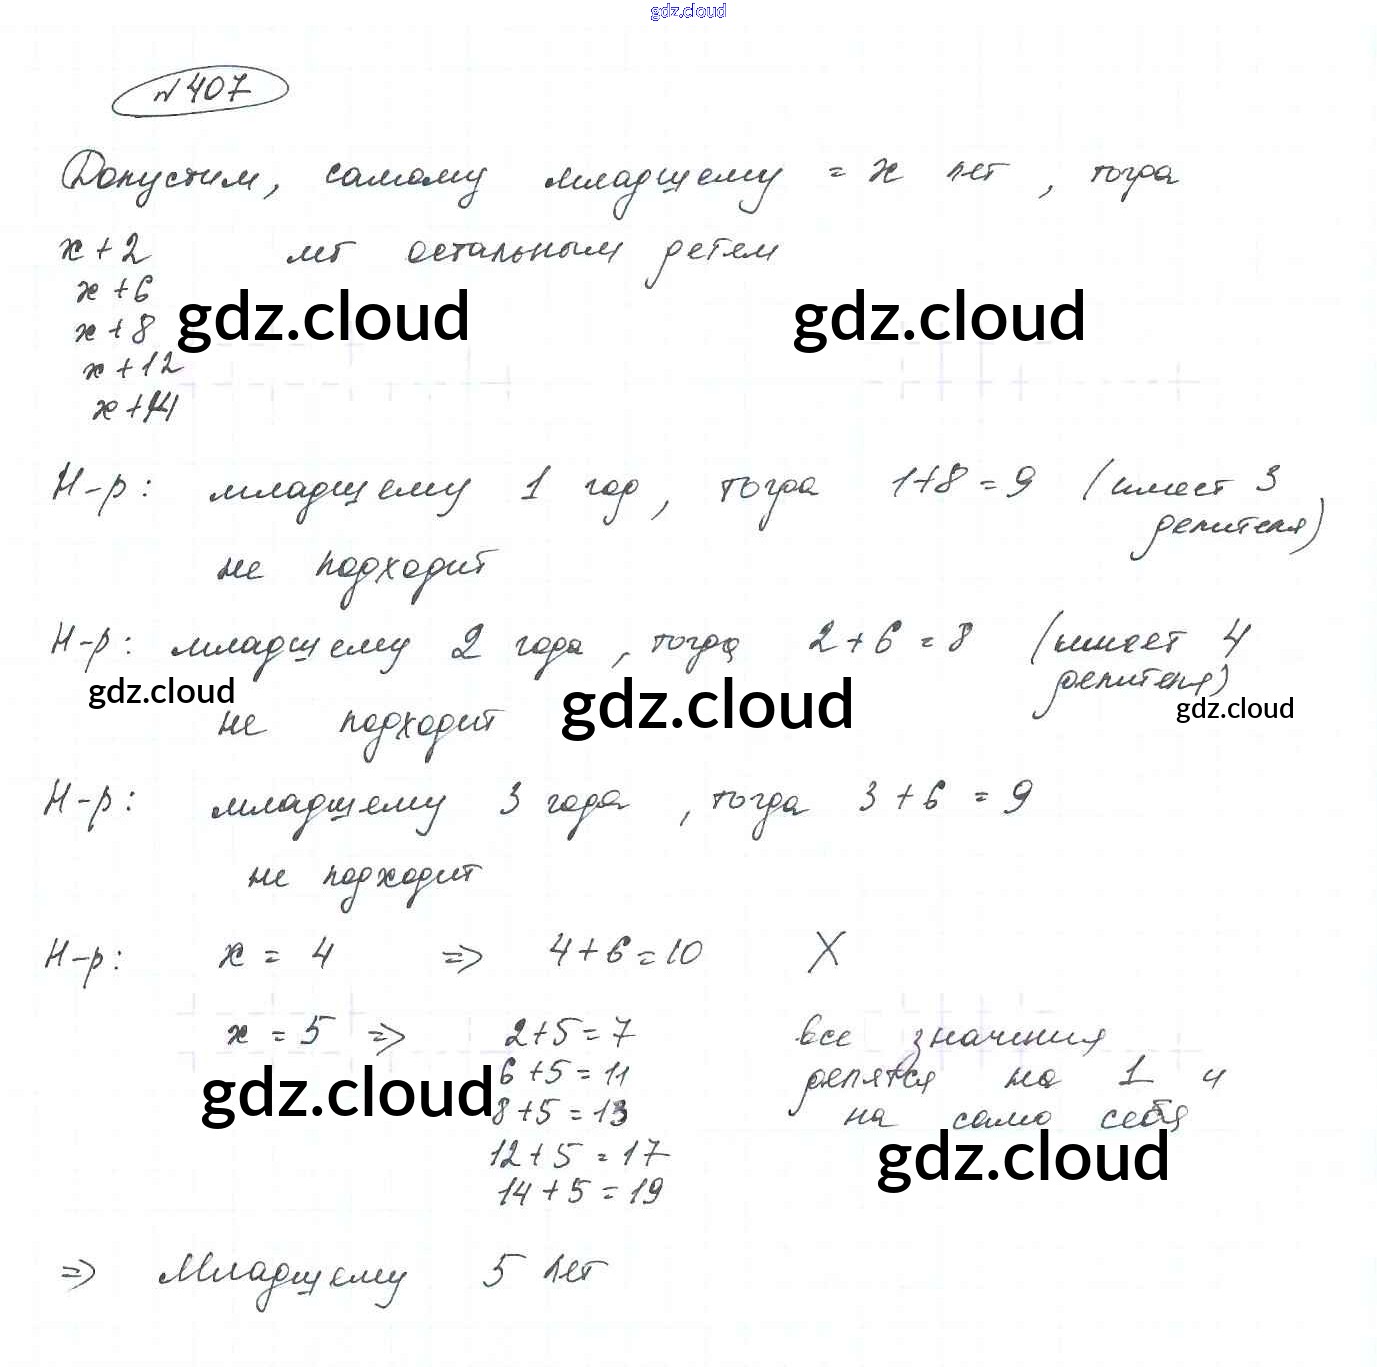 gdz.cloud
№407
Допустим, самому младшему = x лет, тогда
x + 2 лет остальным детям
x + 6
gdz.cloud gdz.cloud
x + 8
x + 12
x + 14
Н-р: младшему 1 год, тогда 1+8 = 9 (имеет 3
делителя)
не подходит
Н-р: младшему 2 года, тогда 2 + 6 = 8 (имеет 4
делителя)
gdz.cloud gdz.cloud gdz.cloud
не подходит
Н-р: младшему 3 года, тогда 3 + 6 = 9
не подходит
Н-р: x = 4 => 4+6=10 X
x = 5 => 2+5=7 все значения
6 + 5 = 11 делятся на 1 и
gdz.cloud
8+5 = 13 на само себя
12+5 = 17 gdz.cloud
14+5 = 19
=> Младшему 5 лет